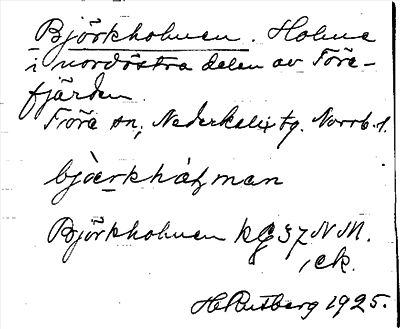 Björkholmen. Holme
i nordöstra delen av Töre-
fjärden.
Töre sn, Nederkalix tg. Norrb. l.
Björkholmen kg 37 NM.
ek.
H. Rutberg 1925.